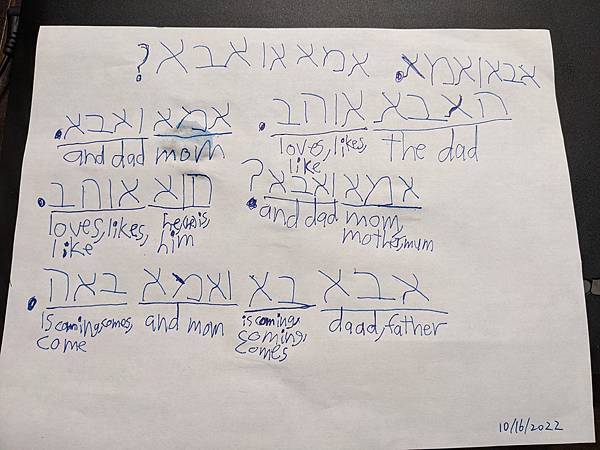 אבא ואמא.
אמא או אבא?
האבא אוהב.
loves, likes, like
the dad
אמא ואבא.
and dad mom
אמא ואבא?
and dad
mom, mother, mum
הוא אוהב.
loves, likes, like
he, him
אבא בא ואמא באה.
Is coming, comes, come
and mom
is coming, coming, comes
daad, father
10/16/2022